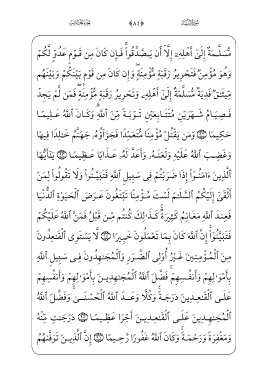 مُّسَلَّمَةٌ إِلَىٰٓ أَهْلِهِۦٓ إِلَّآ أَن يَصَّدَّقُوا۟ فَإِن كَانَ مِن قَوْمٍ عَدُوٍّ لَّكُمْ
وَهُوَ مُؤْمِنٌ فَتَحْرِيرُ رَقَبَةٍ مُّؤْمِنَةٍ وَإِن كَانَ مِن قَوْمٍۭ بَيْنَكُمْ وَبَيْنَهُم
مِّيثَٰقٌ فَدِيَةٌ مُّسَلَّمَةٌ إِلَىٰٓ أَهْلِهِۦ وَتَحْرِيرُ رَقَبَةٍ مُّؤْمِنَةٍ فَمَن لَّمْ يَجِدْ
فَصِيَامُ شَهْرَيْنِ مُتَتَابِعَيْنِ تَوْبَةً مِّنَ ٱللَّهِ وَكَانَ ٱللَّهُ عَلِيمًا
حَكِيمًا ۝ وَمَن يَقْتُلْ مُؤْمِنًا مُّتَعَمِّدًا فَجَزَآؤُهُۥ جَهَنَّمُ خَٰلِدًا فِيهَا
وَغَضِبَ ٱللَّهُ عَلَيْهِ وَلَعَنَهُۥ وَأَعَدَّ لَهُۥ عَذَابًا عَظِيمًا ۝ يَٰٓأَيُّهَا
ٱلَّذِينَ ءَامَنُوٓا۟ إِذَا ضَرَبْتُمْ فِى سَبِيلِ ٱللَّهِ فَتَبَيَّنُوا۟ وَلَا تَقُولُوا۟ لِمَنْ
أَلْقَىٰٓ إِلَيْكُمُ ٱلسَّلَٰمَ لَسْتَ مُؤْمِنًا تَبْتَغُونَ عَرَضَ ٱلْحَيَوٰةِ ٱلدُّنْيَا
فَعِندَ ٱللَّهِ مَغَانِمُ كَثِيرَةٌ كَذَٰلِكَ كُنتُم مِّن قَبْلُ فَمَنَّ ٱللَّهُ عَلَيْكُمْ
فَتَبَيَّنُوٓا۟ إِنَّ ٱللَّهَ كَانَ بِمَا تَعْمَلُونَ خَبِيرًا ۝ لَّا يَسْتَوِى ٱلْقَٰعِدُونَ
مِنَ ٱلْمُؤْمِنِينَ غَيْرُ أُو۟لِى ٱلضَّرَرِ وَٱلْمُجَٰهِدُونَ فِى سَبِيلِ ٱللَّهِ
بِأَمْوَٰلِهِمْ وَأَنفُسِهِمْ فَضَّلَ ٱللَّهُ ٱلْمُجَٰهِدِينَ بِأَمْوَٰلِهِمْ وَأَنفُسِهِمْ
عَلَى ٱلْقَٰعِدِينَ دَرَجَةً وَكُلًّا وَعَدَ ٱللَّهُ ٱلْحُسْنَىٰ وَفَضَّلَ ٱللَّهُ
ٱلْمُجَٰهِدِينَ عَلَى ٱلْقَٰعِدِينَ أَجْرًا عَظِيمًا ۝ دَرَجَٰتٍ مِّنْهُ
وَمَغْفِرَةً وَرَحْمَةً وَكَانَ ٱللَّهُ غَفُورًا رَّحِيمًا ۝ إِنَّ ٱلَّذِينَ تَوَفَّىٰهُمُ